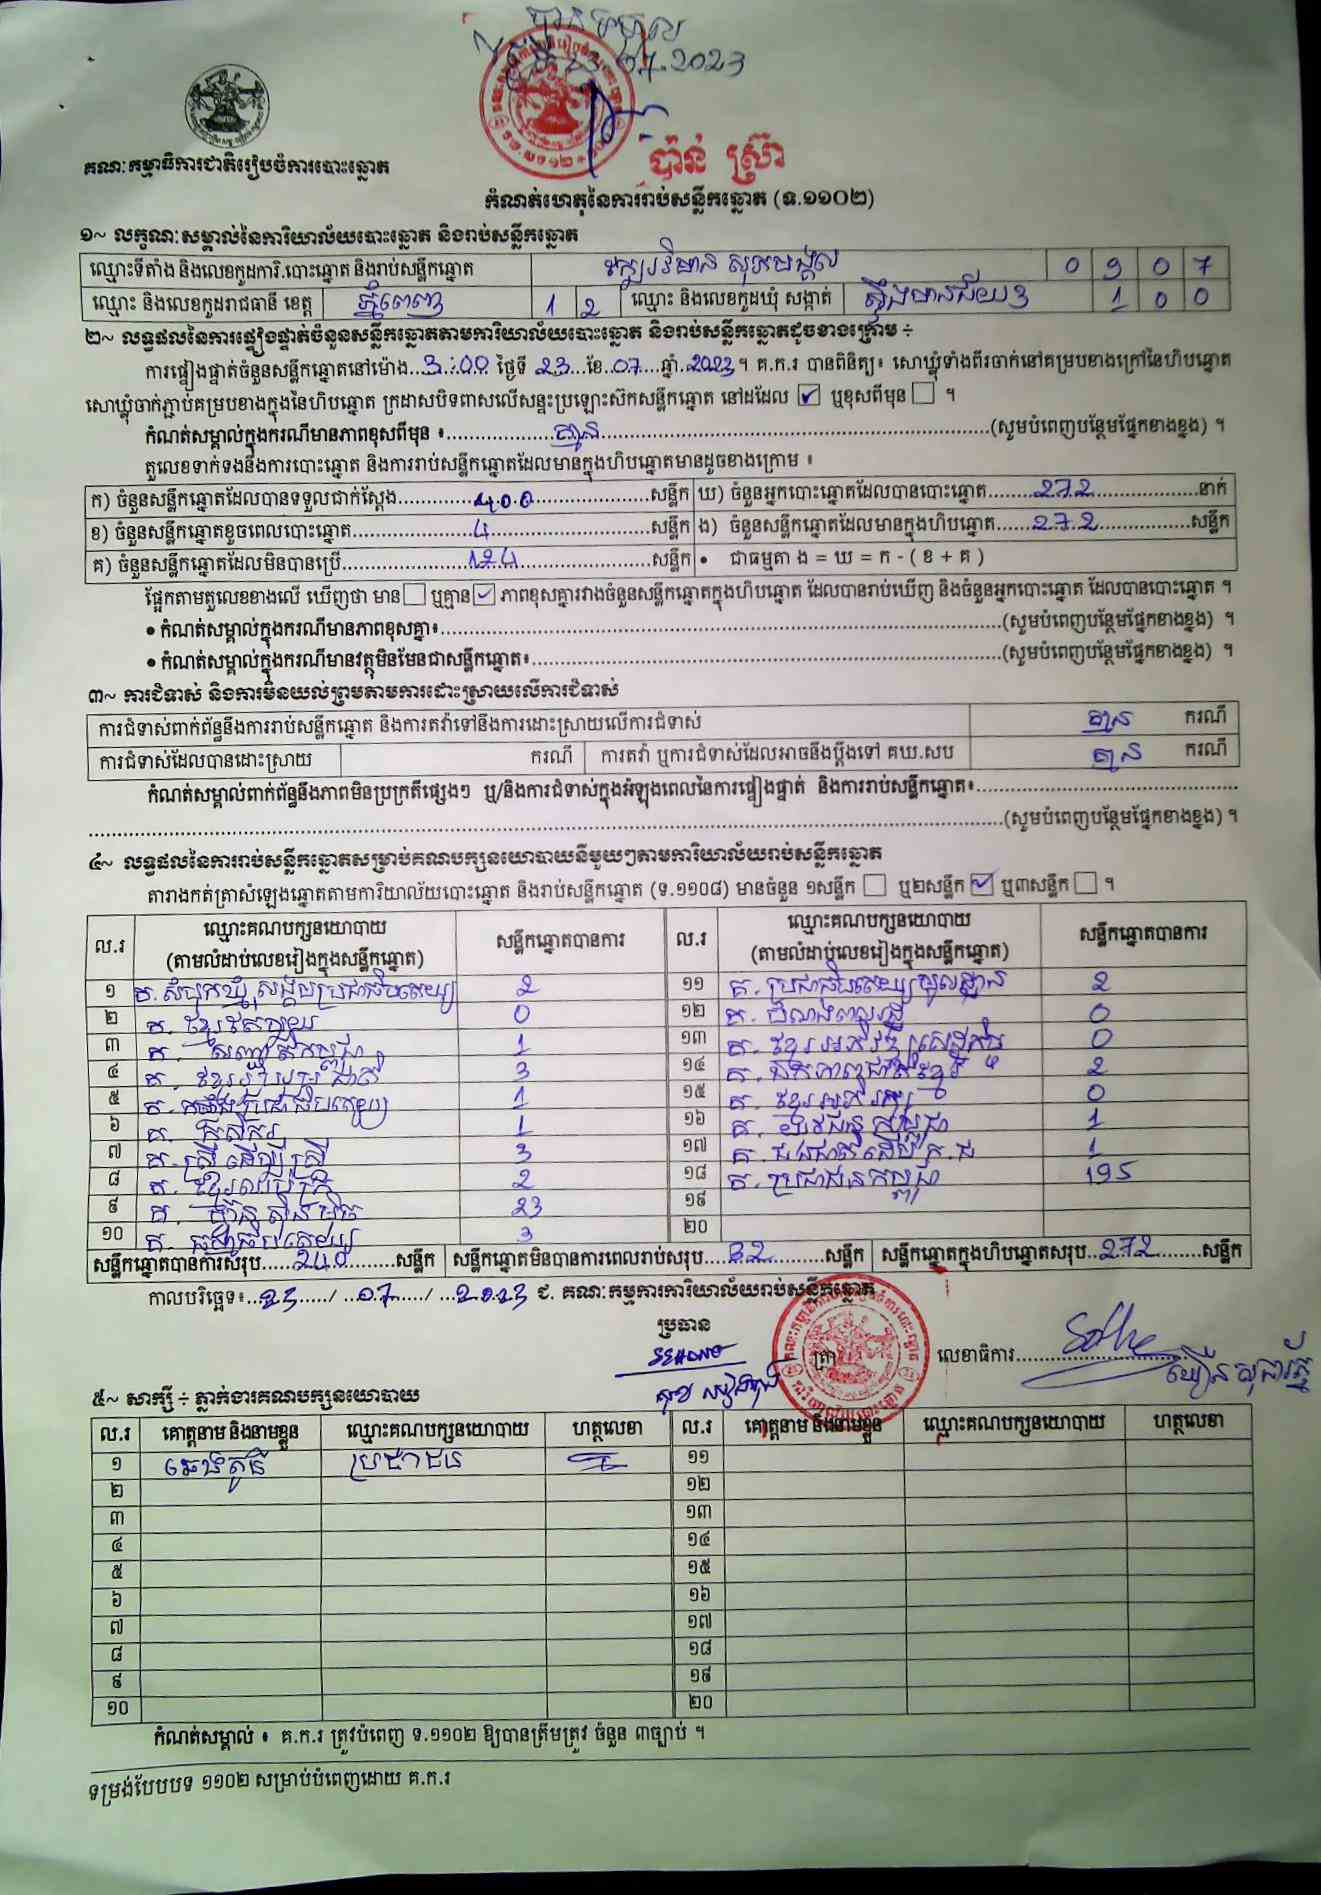 បានទទួល
07.2023
ប៉ាន់ ស្រ៊ា
គណៈកម្មាធិការជាតិរៀបចំការបោះឆ្នោត
កំណត់ហេតុនៃការរាប់សន្លឹកឆ្នោត (ទ.១១០២)
១~ លក្ខណៈសម្គាល់នៃការិយាល័យបោះឆ្នោត និងរាប់សន្លឹកឆ្នោត
ឈ្មោះទីតាំង និងលេខកូដការិ.បោះឆ្នោត និងរាប់សន្លឹកឆ្នោត 0 9 0 7
ឈ្មោះ និងលេខកូដរាជធានី ខេត្ត ភ្នំពេញ 1 2 ឈ្មោះ និងលេខកូដឃុំ សង្កាត់ ស្ទឹងមានជ័យ៣ 1 0 0
២~ លទ្ធផលនៃការផ្ទៀងផ្ទាត់ចំនួនសន្លឹកឆ្នោតតាមការិយាល័យបោះឆ្នោត និងរាប់សន្លឹកឆ្នោតដូចខាងក្រោម ÷
ការផ្ទៀងផ្ទាត់ចំនួនសន្លឹកឆ្នោតនៅម៉ោង...3:00 ថ្ងៃទី 23...ខែ.07....ឆ្នាំ.2023។ គ.ក.រ បានពិនិត្យ៖ សោឃ្លុំទាំងពីរចាក់នៅគម្របខាងក្រៅនៃហិបឆ្នោត
សោឃ្លុំចាក់ភ្ជាប់គម្របខាងក្នុងនៃហិបឆ្នោត ក្រដាសបិទពាសលើសន្ទះប្រឡោះស៊កសន្លឹកឆ្នោត នៅដដែល ☑ ឬខុសពីមុន ☐ ។
កំណត់សម្គាល់ក្នុងករណីមានភាពខុសពីមុន ៖..................គ្មាន..................(សូមបំពេញបន្ថែមផ្នែកខាងខ្នង) ។
តួលេខទាក់ទងនឹងការបោះឆ្នោត និងការរាប់សន្លឹកឆ្នោតដែលមានក្នុងហិបឆ្នោតមានដូចខាងក្រោម ៖
ក) ចំនួនសន្លឹកឆ្នោតដែលបានទទួលជាក់ស្តែង.............400.............សន្លឹក ឃ) ចំនួនអ្នកបោះឆ្នោតដែលបានបោះឆ្នោត........272.............នាក់
ខ) ចំនួនសន្លឹកឆ្នោតខូចពេលបោះឆ្នោត.............4.............សន្លឹក ង) ចំនួនសន្លឹកឆ្នោតដែលមានក្នុងហិបឆ្នោត......272.............សន្លឹក
គ) ចំនួនសន្លឹកឆ្នោតដែលមិនបានប្រើ.............124.............សន្លឹក • ជាធម្មតា ង = ឃ = ក - ( ខ + គ )
ផ្អែកតាមតួលេខខាងលើ ឃើញថា មាន ☐ ឬគ្មាន ☑ ភាពខុសគ្នារវាងចំនួនសន្លឹកឆ្នោតក្នុងហិបឆ្នោត ដែលបានរាប់ឃើញ និងចំនួនអ្នកបោះឆ្នោត ដែលបានបោះឆ្នោត ។
• កំណត់សម្គាល់ក្នុងករណីមានភាពខុសគ្នា៖..................(សូមបំពេញបន្ថែមផ្នែកខាងខ្នង) ។
• កំណត់សម្គាល់ក្នុងករណីមានវត្ថុមិនមែនជាសន្លឹកឆ្នោត៖..................(សូមបំពេញបន្ថែមផ្នែកខាងខ្នង) ។
៣~ ការជំទាស់ និងការមិនយល់ព្រមតាមការដោះស្រាយលើការជំទាស់
ការជំទាស់ពាក់ព័ន្ធនឹងការរាប់សន្លឹកឆ្នោត និងការតវ៉ាទៅនឹងការដោះស្រាយលើការជំទាស់ គ្មាន ករណី
ការជំទាស់ដែលបានដោះស្រាយ ករណី ការតវ៉ា ឬការជំទាស់ដែលអាចនឹងប្តឹងទៅ គឃ.សប គ្មាន ករណី
កំណត់សម្គាល់ពាក់ព័ន្ធនឹងភាពមិនប្រក្រតីផ្សេងៗ ឬ/និងការជំទាស់ក្នុងអំឡុងពេលនៃការផ្ទៀងផ្ទាត់ និងការរាប់សន្លឹកឆ្នោត៖..................
..................(សូមបំពេញបន្ថែមផ្នែកខាងខ្នង) ។
៤~ លទ្ធផលនៃការរាប់សន្លឹកឆ្នោតសម្រាប់គណបក្សនយោបាយនីមួយៗតាមការិយាល័យរាប់សន្លឹកឆ្នោត
តារាងកត់ត្រាសំឡេងឆ្នោតតាមការិយាល័យបោះឆ្នោត និងរាប់សន្លឹកឆ្នោត (ទ.១១០៨) មានចំនួន ១សន្លឹក ☐ ឬ២សន្លឹក ☑ ឬ៣សន្លឹក ☐ ។
ល.រ ឈ្មោះគណបក្សនយោបាយ (តាមលំដាប់លេខរៀងក្នុងសន្លឹកឆ្នោត) សន្លឹកឆ្នោតបានការ ល.រ ឈ្មោះគណបក្សនយោបាយ (តាមលំដាប់លេខរៀងក្នុងសន្លឹកឆ្នោត) សន្លឹកឆ្នោតបានការ
១ គ.សំបុកឃ្មុំសង្គមប្រជាធិបតេយ្យ 2 ១១ គ. ប្រជាធិបតេយ្យមូលដ្ឋាន 2
២ គ. ខ្មែរឥស្សរៈ 0 ១២ គ. 0
៣ គ. សញ្ជាតិកម្ពុជា 1 ១៣ គ. ខ្មែរអភិវឌ្ឍន៍សេដ្ឋកិច្ច 0
៤ គ. ខ្មែររួបរួមជាតិ 3 ១៤ គ. ឯកភាពជាតិខ្មែរ 2
៥ គ. ប្រជាធិបតេយ្យ 1 ១៥ គ. ខ្មែរអភិរក្ស 0
៦ គ. កសិករ 1 ១៦ គ. យុវជនកម្ពុជា 1
៧ គ. ស្ត្រីដើម្បីស្ត្រី 3 ១៧ គ. 1
៨ គ. ខ្មែរ 2 ១៨ គ. ប្រជាជនកម្ពុជា 195
៩ គ. ហ៊្វុនស៊ិនប៉ិច 23 ១៩
១០ គ. ធម្មាធិបតេយ្យ 3 ២០
សន្លឹកឆ្នោតបានការសរុប.....240.........សន្លឹក សន្លឹកឆ្នោតមិនបានការពេលរាប់សរុប....32..........សន្លឹក សន្លឹកឆ្នោតក្នុងហិបឆ្នោតសរុប..272........សន្លឹក
កាលបរិច្ឆេទ៖..23...../ ..07...../ ...2023 ជ. គណៈកម្មការការិយាល័យរាប់សន្លឹកឆ្នោត
ប្រធាន
ត្រា លេខាធិការ..................
៥~ សាក្សី ÷ ភ្នាក់ងារគណបក្សនយោបាយ
ល.រ គោត្តនាម និងនាមខ្លួន ឈ្មោះគណបក្សនយោបាយ ហត្ថលេខា ល.រ គោត្តនាម និងនាមខ្លួន ឈ្មោះគណបក្សនយោបាយ ហត្ថលេខា
១ ប្រជាជន ១១
២ ១២
៣ ១៣
៤ ១៤
៥ ១៥
៦ ១៦
៧ ១៧
៨ ១៨
៩ ១៩
១០ ២០
កំណត់សម្គាល់ ៖ គ.ក.រ ត្រូវបំពេញ ទ.១១០២ ឱ្យបានត្រឹមត្រូវ ចំនួន ៣ច្បាប់ ។
ទម្រង់បែបបទ ១១០២ សម្រាប់បំពេញដោយ គ.ក.រ